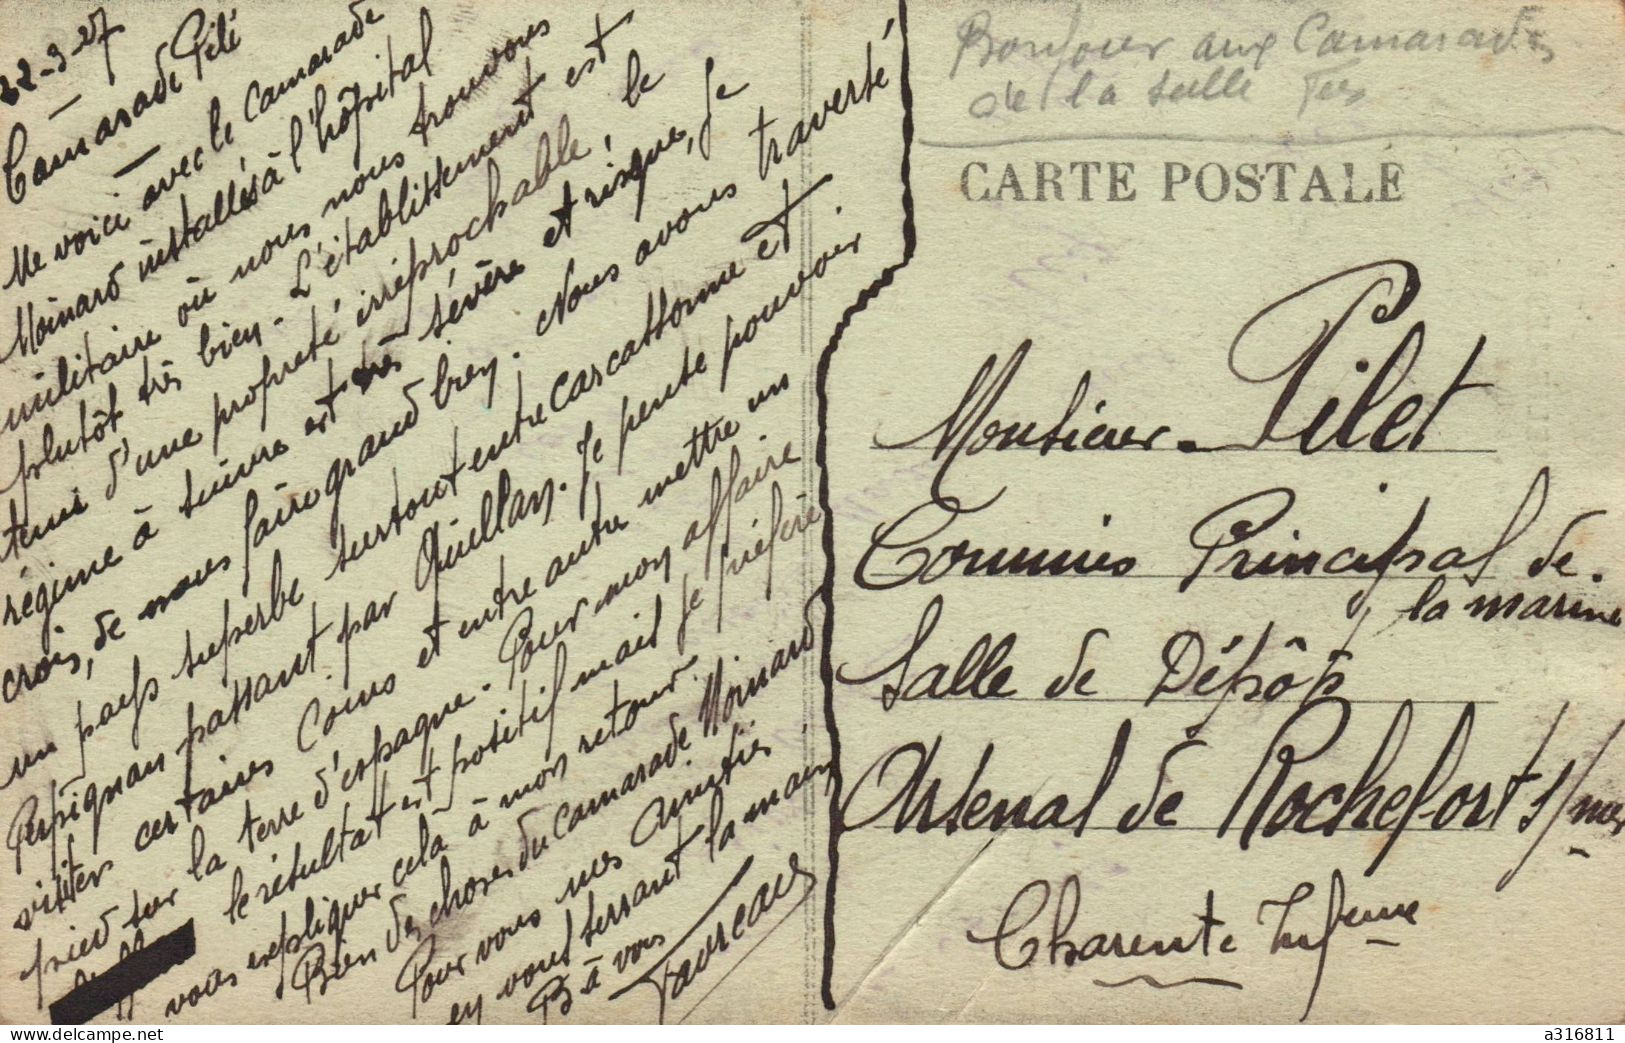 22-3-27
Camarade Pilé
Me voici avec le Camarade
Moinard installés à l'hôpital
militaire où nous nous trouvons
plutôt très bien. L'établissement est
tenu d'une propreté irréprochable, le
régime à suivre est très sévère et risque, je
crois, de nous faire grand bien. Nous avons traversé
un pays superbe surtout entre Carcassonne et
Perpignan passant par Quillan. Je pense pouvoir
visiter certaines Coins et entre autre mettre un
pied sur la terre d'espagne. Pour mon affaire
le résultat est positif mais je préfère
vous expliquer cela à mon retour.
Bien des choses du Camarade Moinard
Pour vous mes Amitiés
en vous serrant la main
B à vous
Favreau
Bonjour aux Camarades
de la salle
CARTE POSTALE
Monsieur Pilet
Commis Principal de
la marine
Salle de Dépôts
Arsenal de Rochefort s/mer
Charente Infre
a316811
www.delcampe.net